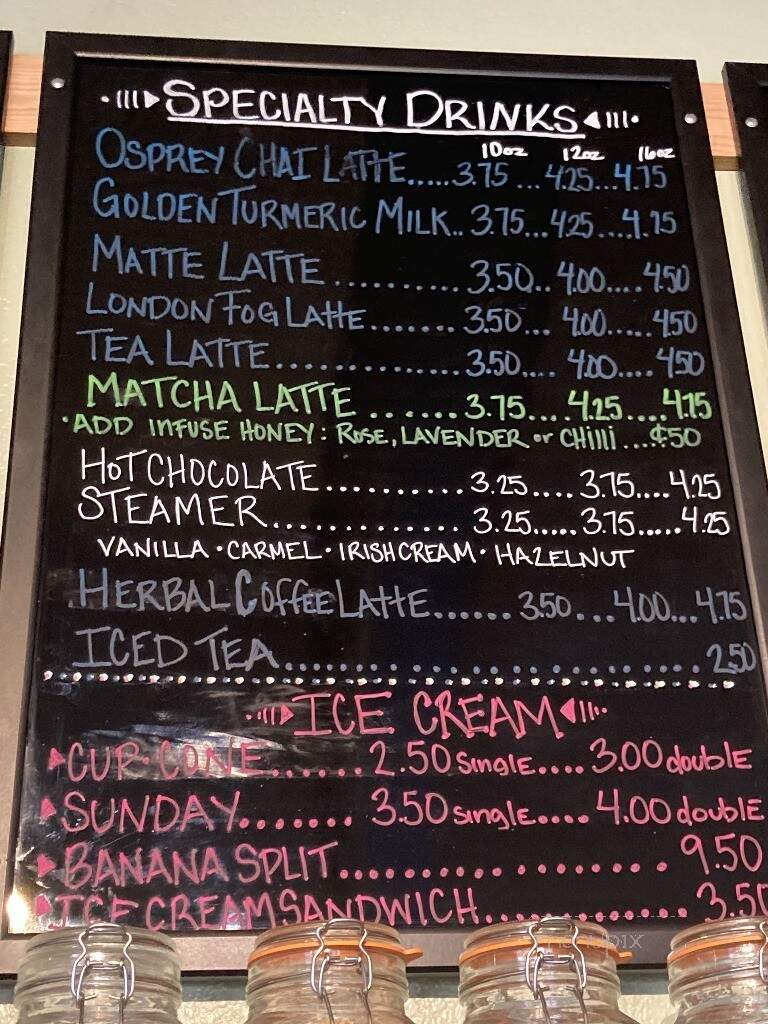 SPECIALTY DRINKS
10oz 12oz 16oz
OSPREY CHAI LATTE.....3.75...4.25...4.75
GOLDEN TURMERIC MILK..3.75...4.25...4.75
MATTE LATTE..........3.50..4.00....4.50
LONDON FOG LATTE.......3.50...4.00.....4.50
TEA LATTE...............3.50....4.00....4.50
MATCHA LATTE.......3.75....4.25....4.75
•ADD INFUSE HONEY: ROSE, LAVENDER or CHilli...¢50
HOT CHOCOLATE..........3.25....3.75....4.25
STEAMER..............3.25.....3.75.....4.25
VANILLA • CARMEL • IRISH CREAM • HAZELNUT
HERBAL COFFEE LATTE......3.50...4.00...4.75
ICED TEA....................2.50
ICE CREAM
CUP • CONE.......2.50 single....3.00 double
SUNDAY.......3.50 single....4.00 double
BANANA SPLIT..................9.50
ICE CREAM SANDWICH.............3.50